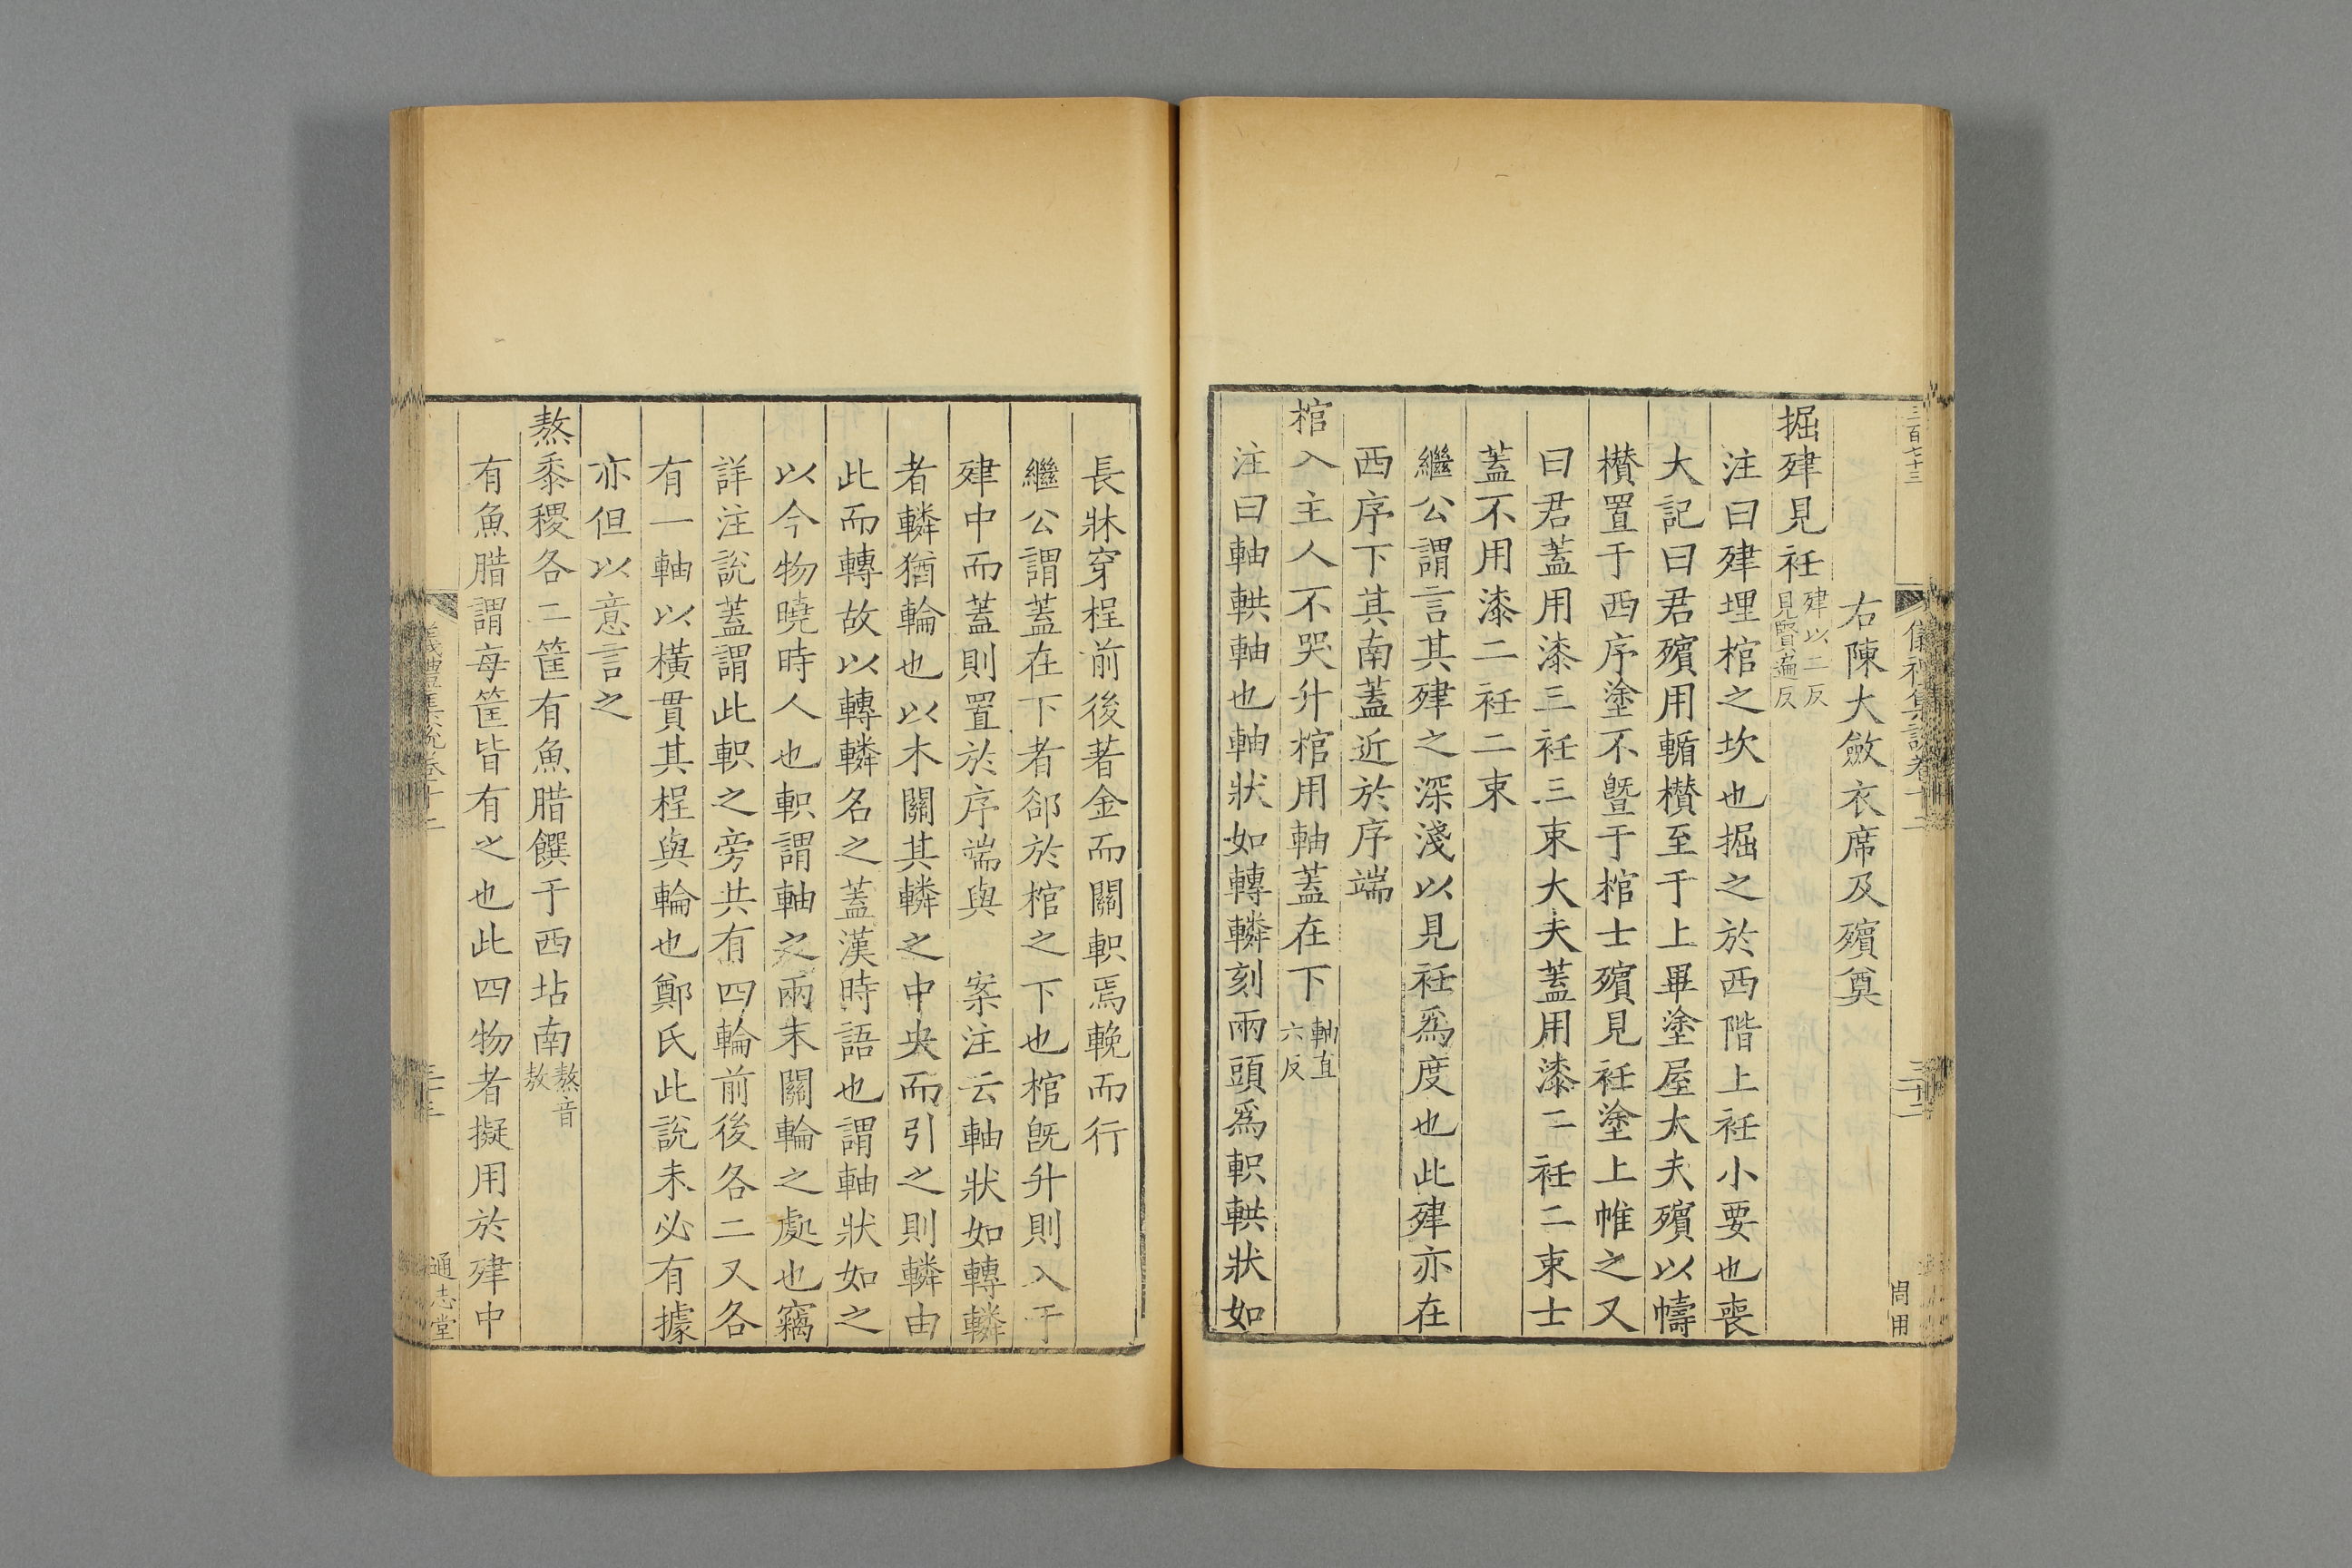 三百七十三
儀禮集說卷十二
三十二
周用
右陳大斂衣席及殯奠
掘肂見衽肂以二反見賢遍反
注曰肂埋棺之坎也掘之於西階上衽小要也喪
大記曰君殯用輴欑至于上畢塗屋大夫殯以幬
欑置于西序塗不曁于棺士殯見衽塗上帷之又
曰君蓋用漆三衽三束大夫蓋用漆二衽二束士
蓋不用漆二衽二束
繼公謂言其肂之深淺以見衽爲度也此肂亦在
西序下其南蓋近於序端
棺入主人不哭升棺用軸蓋在下軸直六反
注曰軸輁軸也軸狀如轉轔刻兩頭爲軹輁狀如
長牀穿桯前後著金而關軹焉輓而行
繼公謂蓋在下者郤於棺之下也棺旣升則入于
肂中而蓋則置於序端與　案注云軸狀如轉轔
者轔猶輪也以木關其轔之中央而引之則轔由
此而轉故以轉轔名之蓋漢時語也謂軸狀如之
以今物曉時人也軹謂軸之兩末關輪之處也竊
詳注說蓋謂此軹之旁共有四輪前後各二又各
有一軸以橫貫其桯與輪也鄭氏此說未必有據
亦但以意言之
熬黍稷各二筐有魚腊饌于西坫南熬音敖
有魚腊謂每筐皆有之也此四物者擬用於肂中
儀禮集說卷十二
通志堂